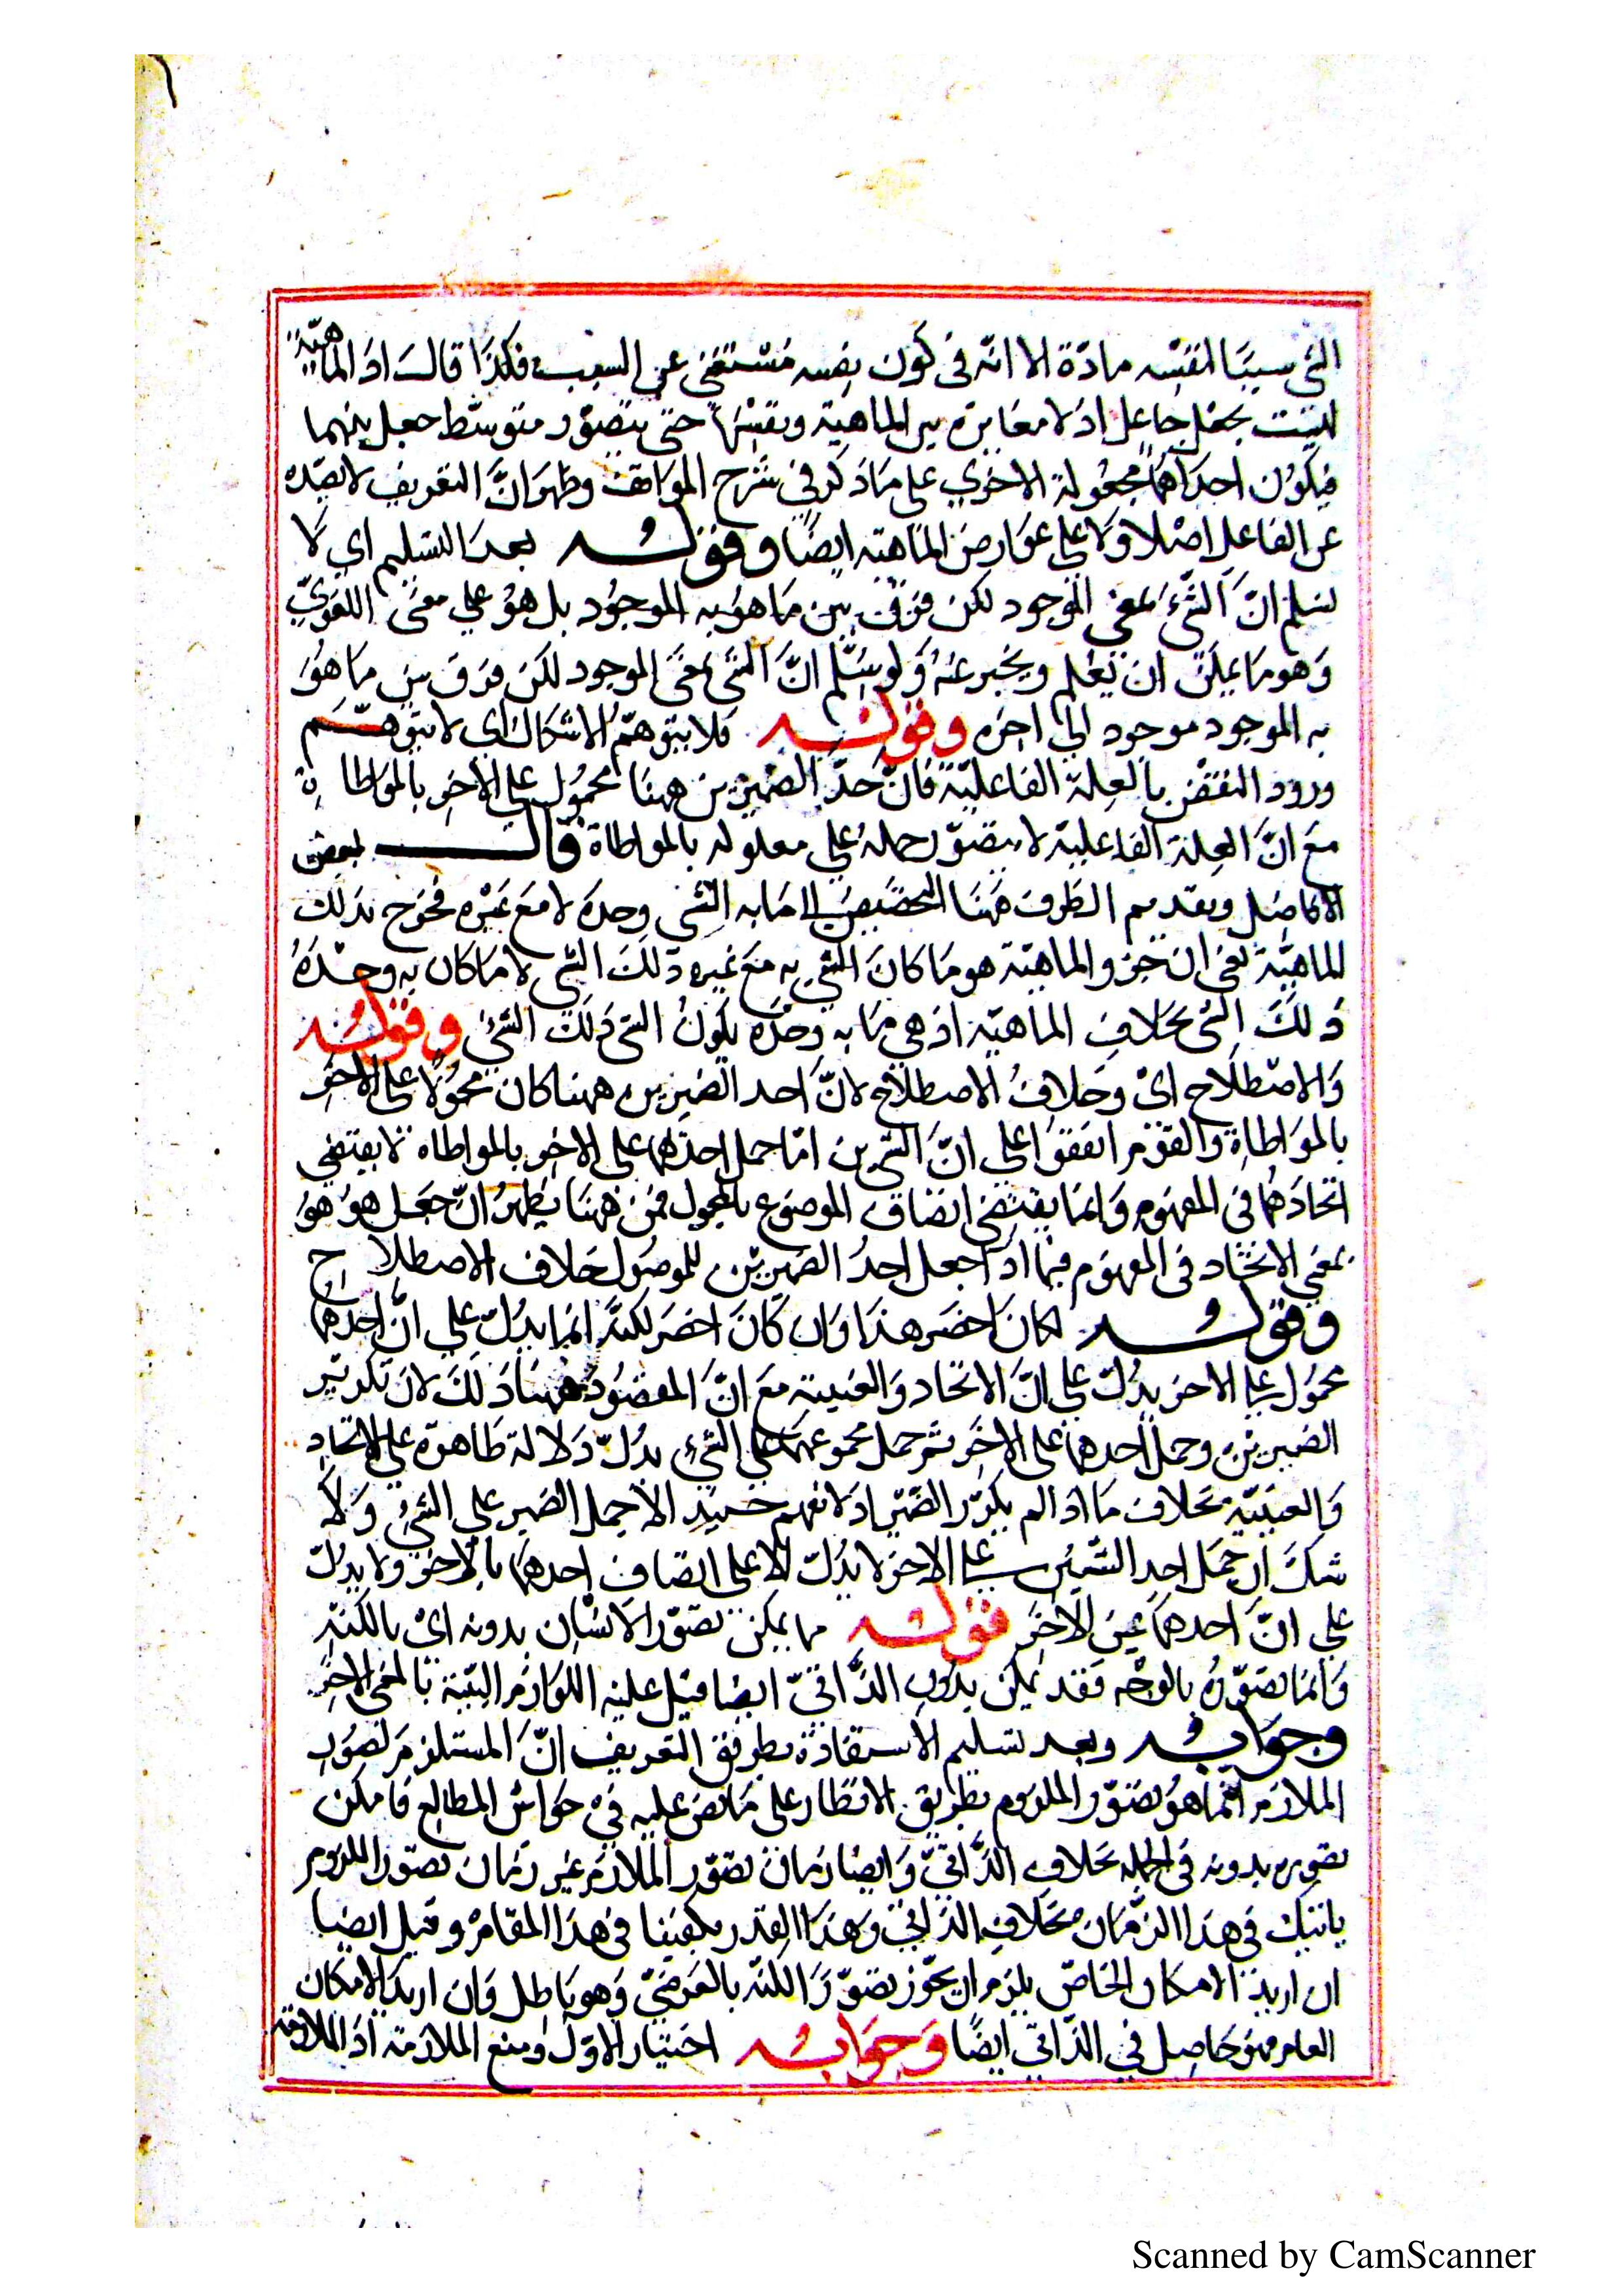 الشئ سببا لنفسه مادة الا انه فى كون نفسه مستغنى عن السبب فكذا قالـ اذ الماهية
ليست بجعل جاعل اذ لا مغايرة بين الماهية ونفسها حتى يتصور متوسط جعل بينهما
فيكون احداهما مجعولة الاخرى على ما ذكر فى شرح المواقف وظهر ان التعريف لا يصده
عن الفاعل اصلا ولا على عوارض الماهية ايضا وقولـه بعد التسليم اى لا
نسلم ان الشئ بمعنى الموجود لكن فرق بين ما هو به الموجود بل هو على معنى اللغوى
وهو ما يمكن ان يعلم ويخبر عنه ولو سلم ان الشئ بمعنى الموجود لكن فرق بين ما هو
به الموجود موجود الى اخره وقولـه فلا يتوهم الاشكال اى لا يتوهـم
ورود النقض بالعلة الفاعلية فان احد الضميرين ههنا محمول على الاخر بالمواطاة
مع ان العلة الفاعلية لا يتصور حمله على معلوله بالمواطاة قالــ بعض
الافاضل وتقديم الظرف ههنا للتخصيص اى ما به الشئ وحده لا مع غيره فخرج بذلك
الماهية يعنى ان جزو الماهية هو ما كان الشئ به مع غيره ذلك الشئ لا ما كان به وحده
ذلك الشئ بخلاف الماهية اذ هى ما به وحده يكون الشئ ذلك الشئ وقولـه
والاصطلاح اى وخلاف الاصطلاح لان احد الضميرين ههنا كان محمولا على الاخر
بالمواطاة والقوم اتفقوا على ان الشيئين اما حمل احدهما على الاخر بالمواطاه لا يقتضى
اتحادهما فى المفهوم وانما يقتضى اتصاف الموضوع بالمحمول فمن ههنا يظهر ان جعل هو هو
بمعنى الاتحاد فى المفهوم فيما اذا جعل احد الضميرين للموصول خلاف الاصطلاح
وقولـه لكان اخصر هذا وان كان اخصر لكنه انما يدل على ان احدهما
محمول على الاخر يدل على ان الاتحاد والعينية مع ان المقصود ههنا ذلك لان تكرير
الضميرين وحمل احدهما على الاخر ثم حمل مجموعهما على الشئ يدل دلالة ظاهرة على الاتحاد
والعينية بخلاف ما اذا لم يكرر الضمير اذ لا يفهم حينيذ الا حمل الضمير على الشئ ولا
شك ان حمل احد الشيئين على الاخر لا يدل الا على اتصاف احدهما بالاخر ولا يدل
على ان احدهما عين الاخر قولـه مما يمكن تصور الانسان بدونه اى بالكنه
وانما تصوره بالوجه فقد يمكن بدون الذاتى ايضا قيل عليه اللوازم البينة بالمعنى الاخر
وجوابـه وبعد تسليم الاستفادة بطريق التعريف ان المستلزم لتصور
الملازم انما هو تصور الملزوم بطريق الاخطار على ما نص عليه فى حواش المطالع فامكن
تصوره بدونه فى الجمله بخلاف الذاتى وايضا زمان تصور الملازم غير زمان تصور الملزوم
ياتيك فى هذا الزمان بخلاف الذاتى وهذا القدر يكفينا فى هذا المقام وقيل ايضا
ان اريد الامكان الخاص يلزم ان يجوز تصور الكنه بالعرضى وهو باطل وان اريد الامكان
العام فهو حاصل فى الذاتى ايضا وجوابـه اختيار الاول ومنع الملازمة اذ الملازمة
Scanned by CamScanner